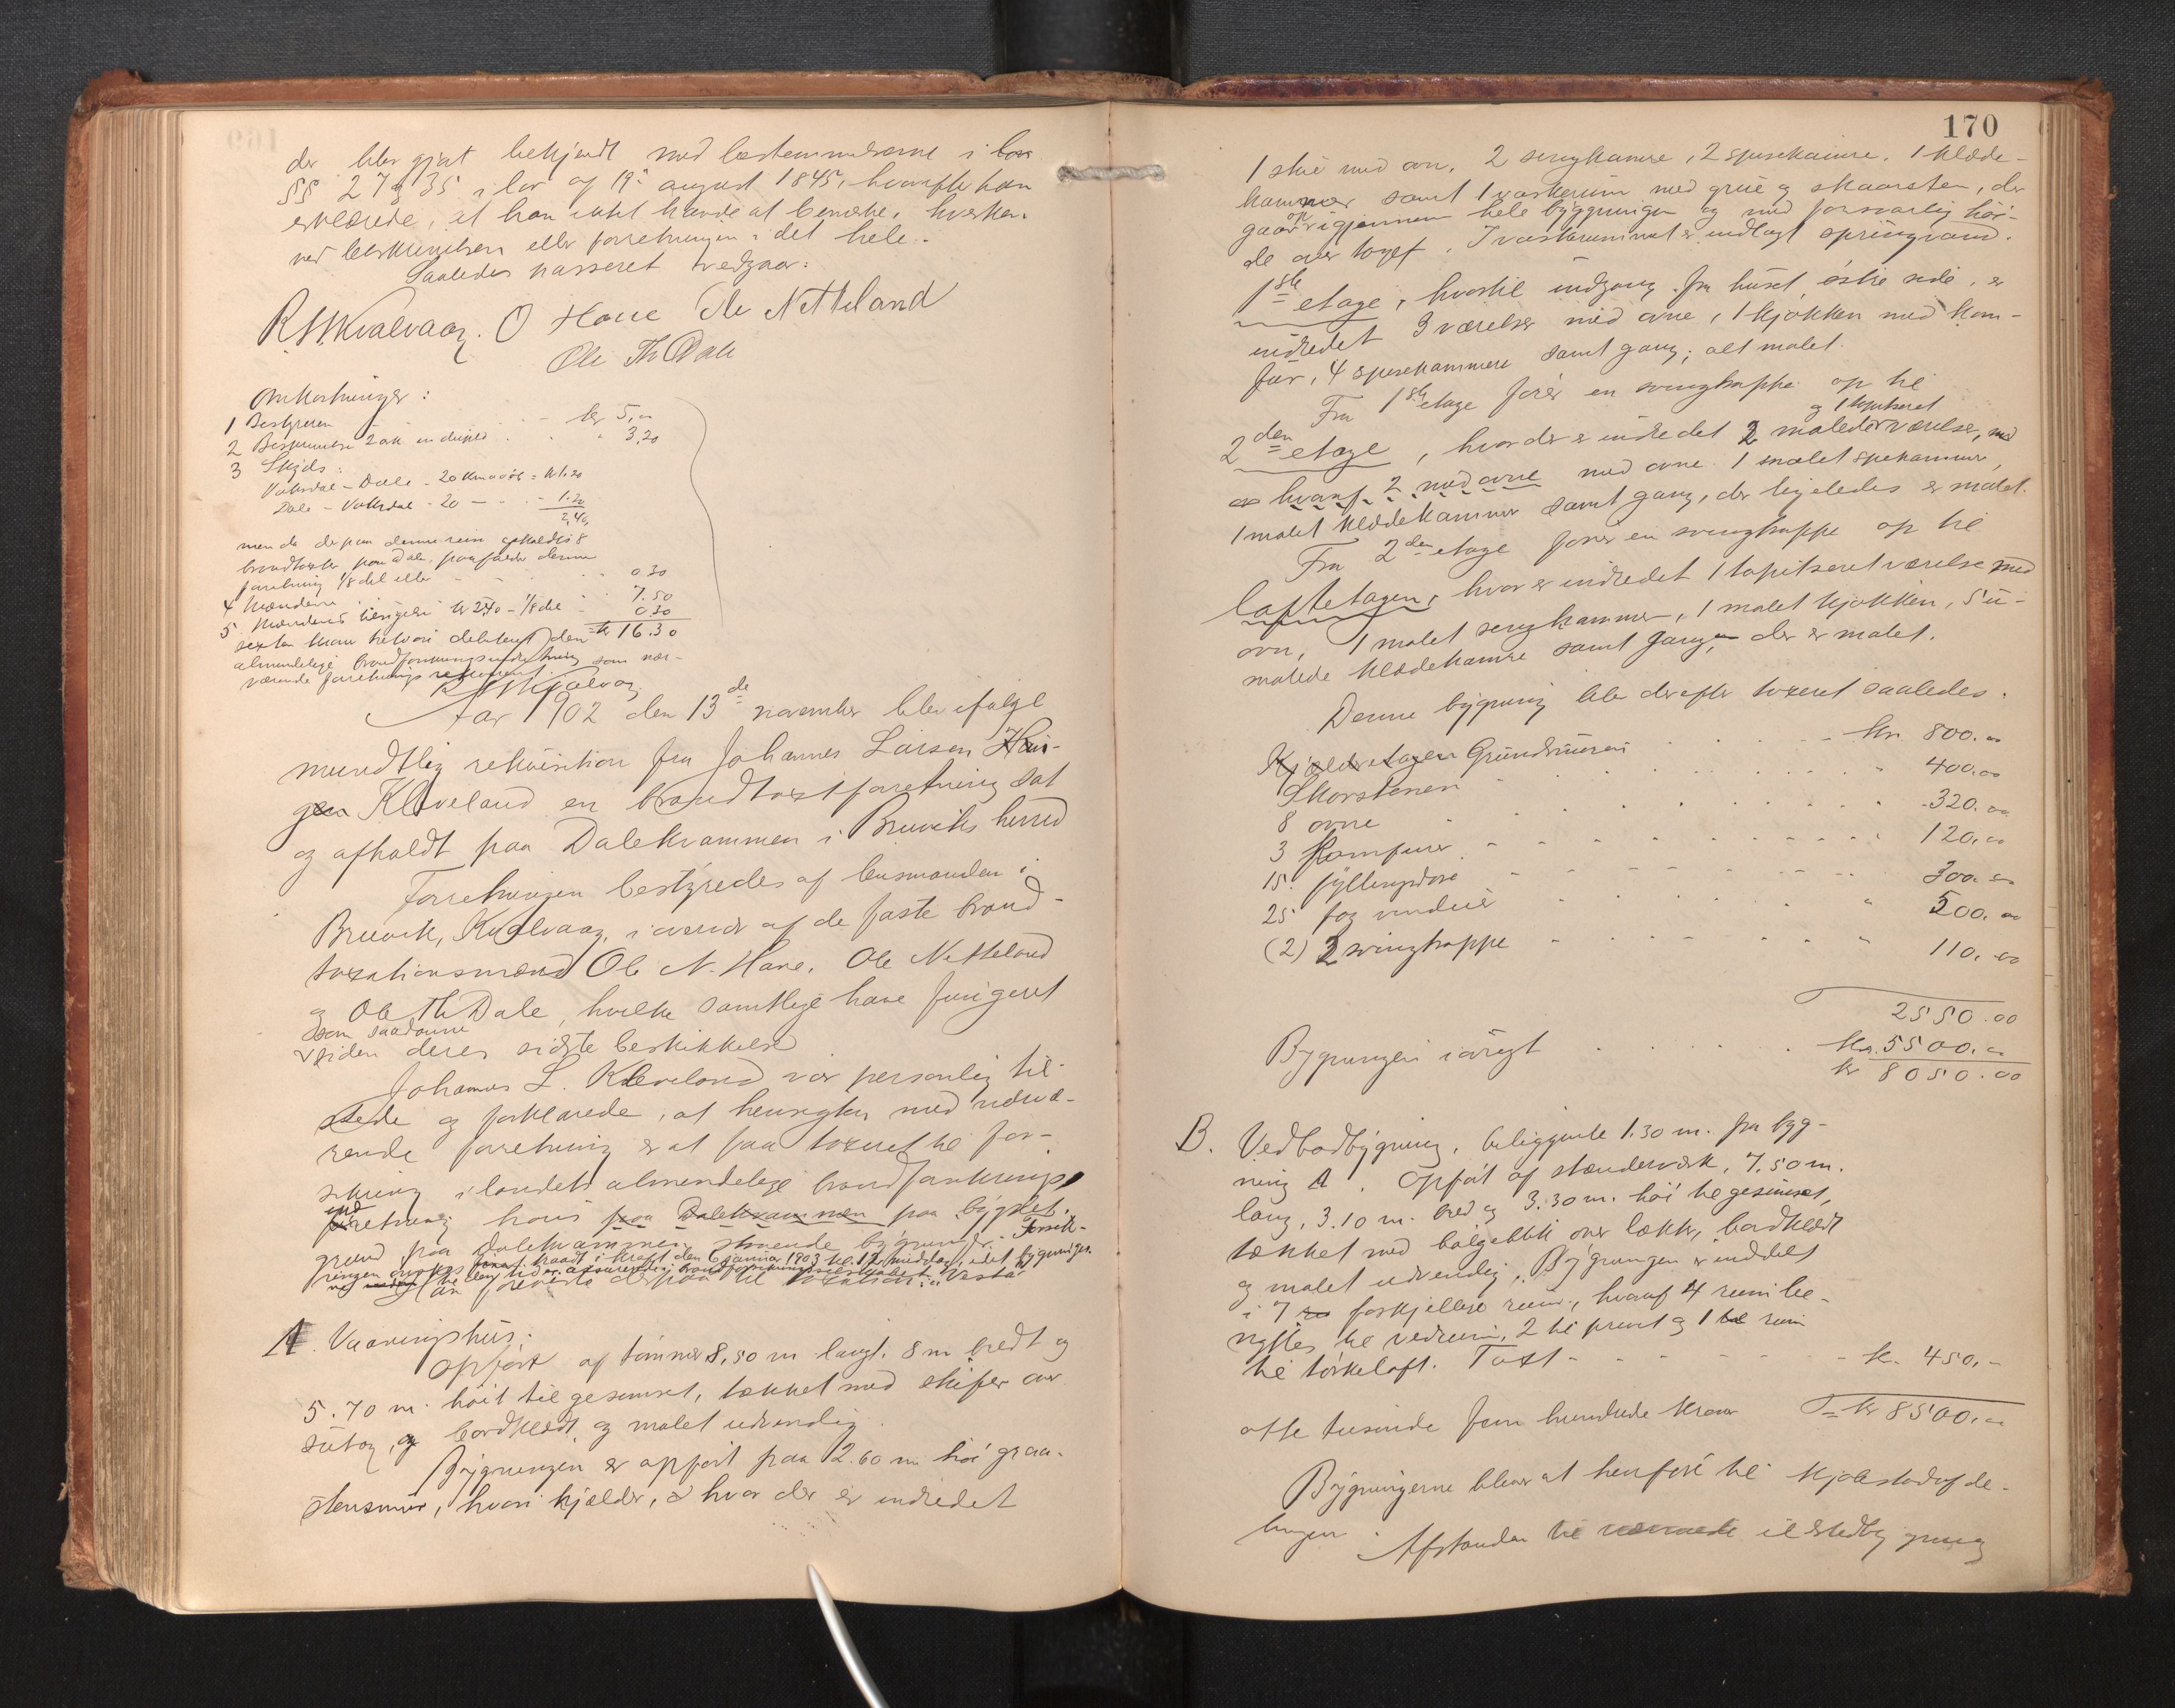 der blev gjort bekjendt med bestemmelserne i lov
§§ 27 og 35 i lov af 19de august 1845, hvorefter han
erklærede, at han intet havde at bemerke, hverken
ved beskrivelsen eller forretningen i det hele.
Saaledes passeret vedgaar:
R. H. Kvalvaag. O Hane Ole Netteland
Ole Th Dale
Omkostninger:
1 Bestyreren kr 5,00
2 Beskrivelse 2 ark 3,20
3 Skyds:
Vaksdal - Dale - 20 km = kr 1.20
Dale - Vaksdal - 20 — - 1.20
2,40,
men da der paa denne reise afholdtes 8
brandtaxter paa Dale, paafalder denne
forretning 1/8 del eller 0.30
4 Mændene 7.50
5 Mændenes kr 2,40 - 1/8 del 0.30
kr 16.30
almindelige brandforsikringsindretning som nær-
værende forretnings rekvirent
R H Kvalvaag
Aar 1902 den 13de november blev ifølge
mundtlig rekvisition fra Johannes Larsen
Kleveland en brandtaxtforretning sat
og afholdt paa Dalekvammen i Bruviks herred
Forretningen bestyredes af lensmanden i
Bruvik, Kvalvaag, i overvær af de faste brand-
taxationsmænd Ole N. Hane, Ole Netteland
og Ole Th Dale, hvilke samtlige have fungeret
som saadanne
siden deres sidste beskikkelse
Johannes L. Kleveland var personlig til-
stede og forklarede, at hensigten med nærvæ-
rende forretning er at faa taxeret til for-
sikring i landets almindelige brandforsikrings
ind
retning hans paa Dalekvammen paa bygslet
grund paa Dalekvammen staaende bygninger. Forsik-
ringen traadt i kraft den 6 januar 1903 kl. 12 middag, idet bygningen
A. Vaaningshus:
Opført af tømmer 8,50 m langt, 8 m bredt og
5.70 m. høit til gesimset, tækket med skifer over
sutag, og bordklædt og malet udvendig.
Bygningen er opført paa 2.60 m høi graa-
stensmur, hvori kjælder, hvor der er indredet
170
1 stue med ovn, 2 sengkamre, 2 spisekamre, 1 klæde-
kammer samt 1 vaskerum med grue og skaarsten, der
gaar op igjennem hele bygningen og med forsvarlig høi-
de over taget. I vaskerummet er indlagt springvand.
1ste etage, hvortil indgang fra huset østre side, er
indredet 3 værelser med ovne, 1 kjøkken med kom-
fur, 4 spisekammere samt gang; alt malet.
Fra 1ste etage fører en svingtrappe op til
og 1 tapitseret
2den etage, hvor der er indredet 2 malede værelser, med
hvoraf 2 med ovne med ovne 1 malet spisekammer,
1 malet klædekammer samt gang, der ligeledes er malet.
Fra 2den etage fører en svingtrappe op til
loftetagen, hvor er indredet 1 tapitseret værelse med
ovn, 1 malet sengkammer, 1 malet kjøkken, 5 u-
malede klædekamre samt gang, der er malet.
Denne bygning blev derefter taxeret saaledes:
Kjælderetagen Grundmuren kr. 800.00
Skorstenen " 400.00
8 ovne 320.00
3 Komfurer 120.00
15 fyllingsdøre 300.00
25 fag vinduer " 500.00
(2) 2 svingtrappe " 110.00
2550.00
Bygningen iøvrigt kr. 5500.00
kr 8050.00
B. Vedbodbygning, beliggende 1.30 m. fra byg-
ning A. Opført af stænderværk, 7.50 m.
lang, 3.10 m. bred og 3.30 m. høi til gesimset,
tækket med bølgeblik over lækter, bordklædt
og malet udvendig. Bygningen er inddelt
i 7 forskjellige rum, hvoraf 4 rum be-
nyttes til vedrum, 2 til privet og 1 rum
til tørkeloft. Taxt - k. 450.-
otte tusinde fem hundrede kroner = kr 8500.00
Bygningerne blev at henføre til kjøbstadafde-
lingen. Afstanden til ildstedbygning